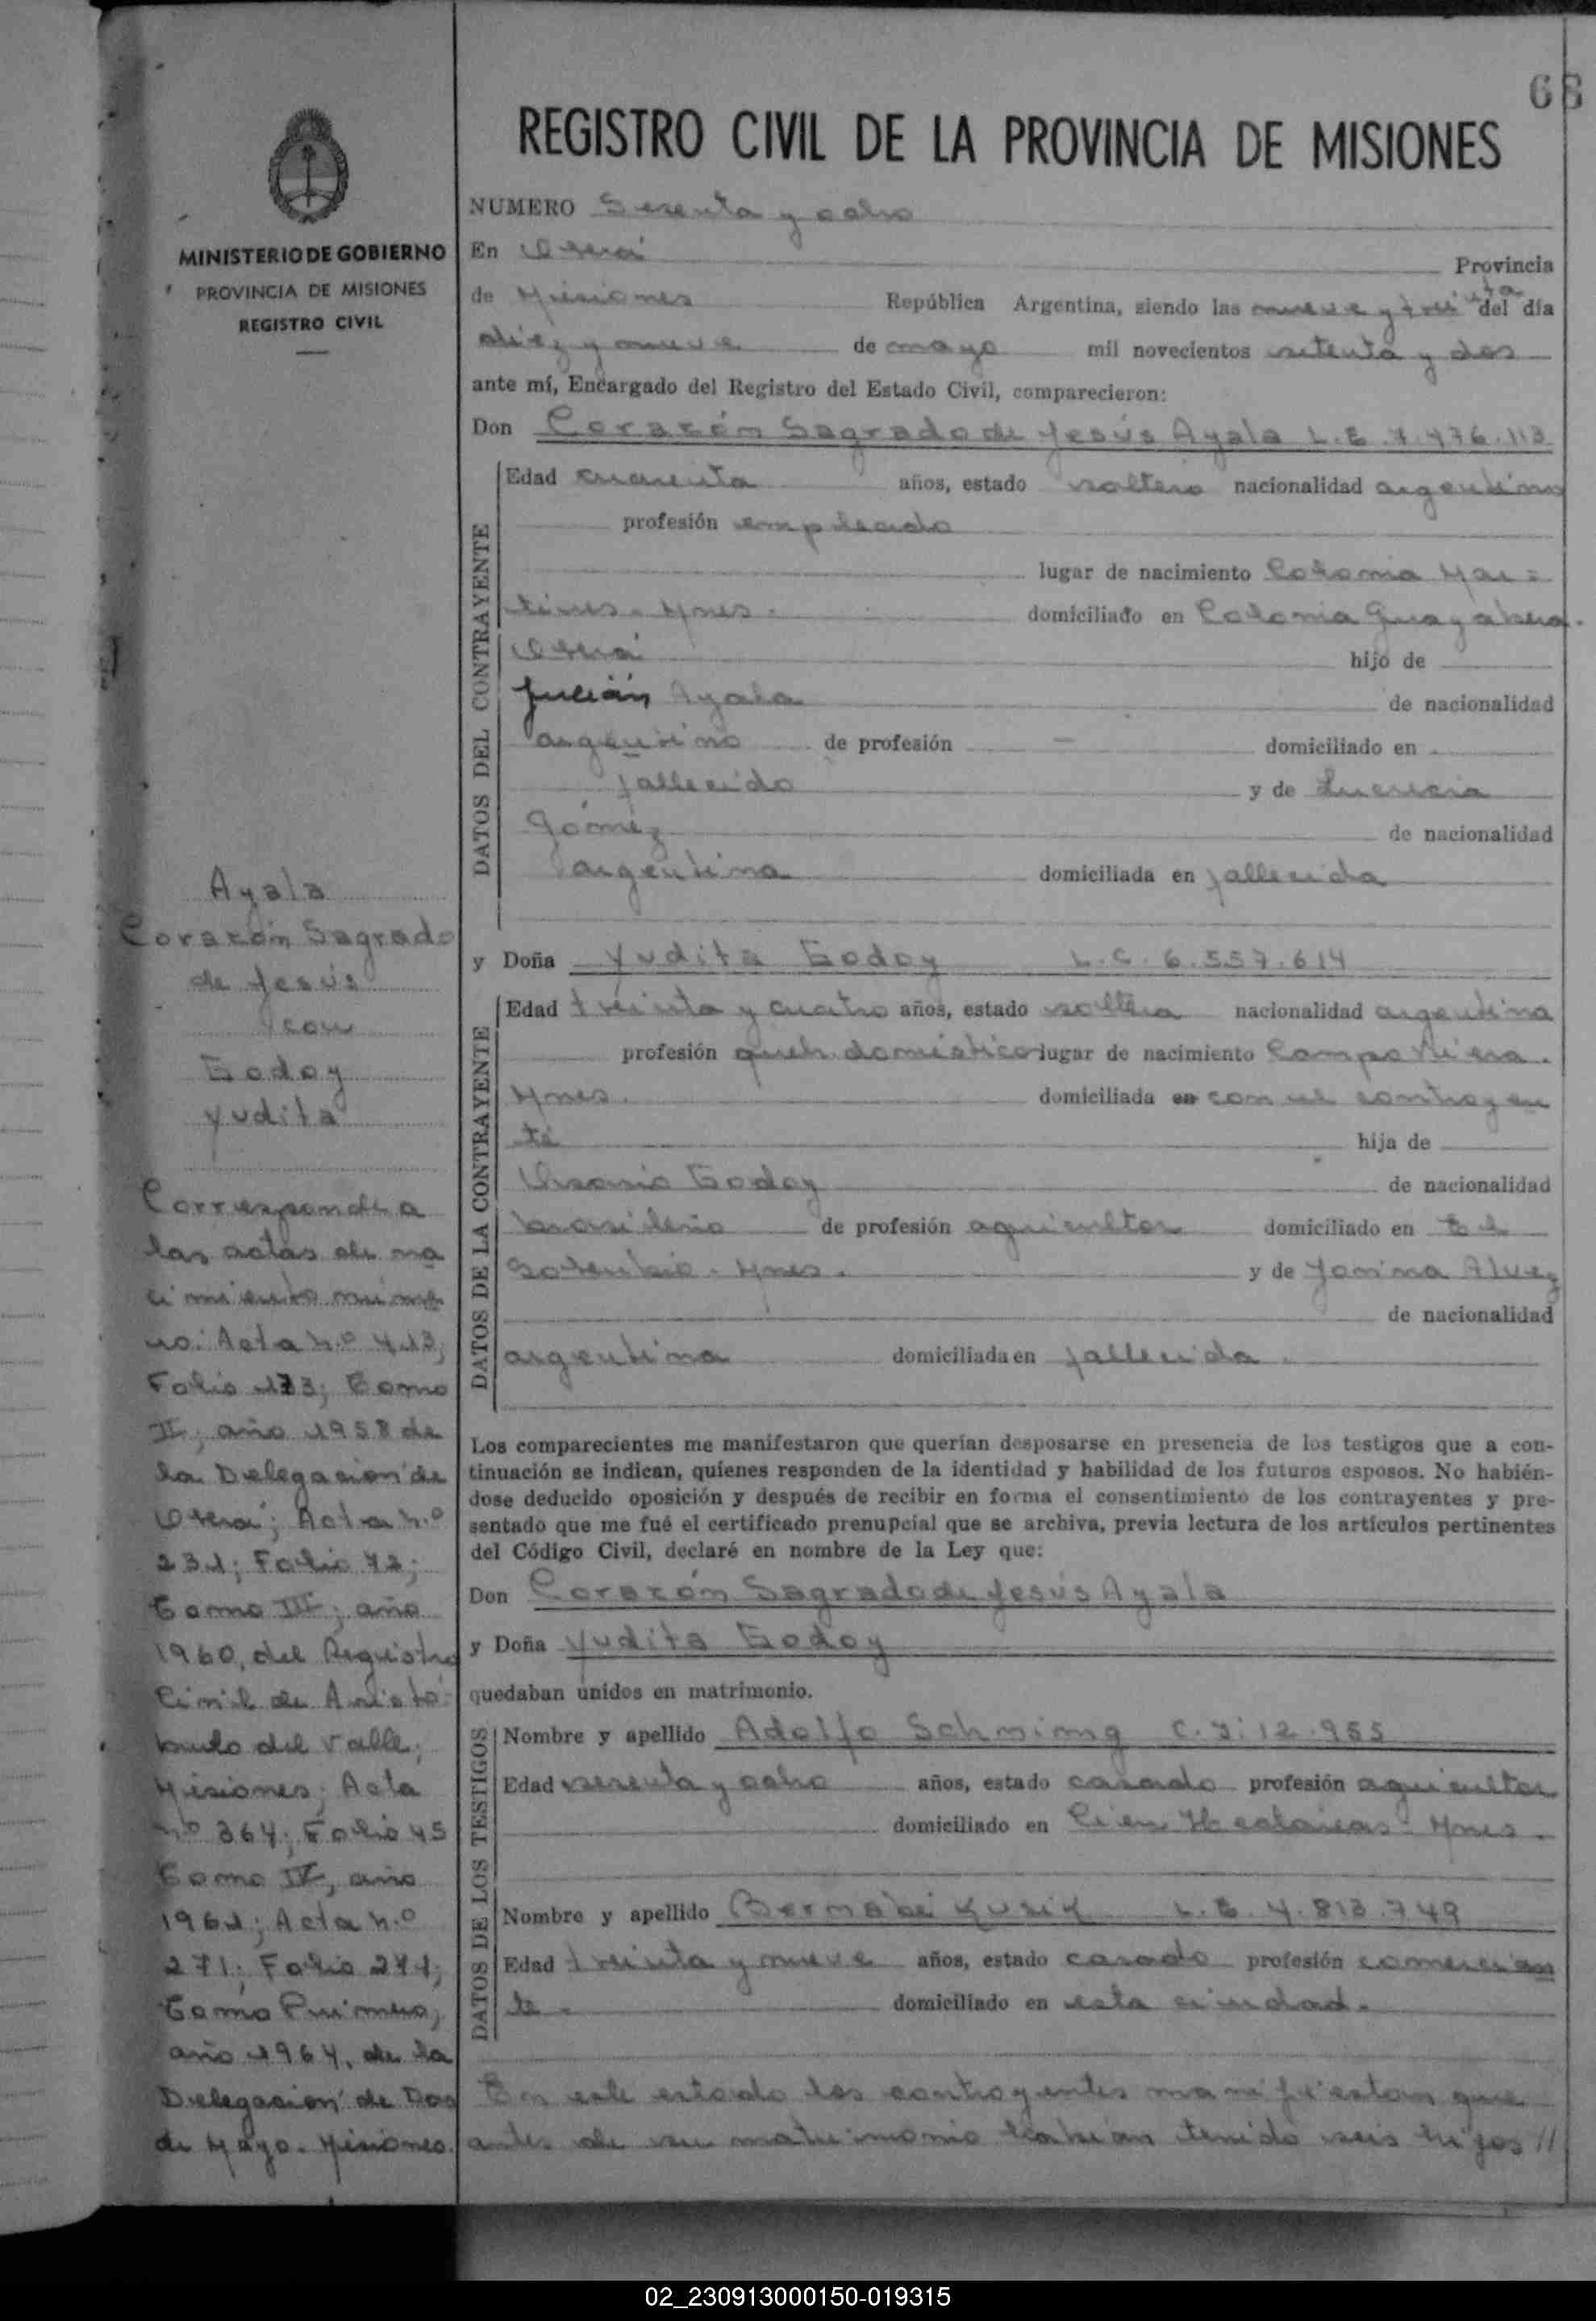 68
REGISTRO CIVIL DE LA PROVINCIA DE MISIONES
MINISTERIO DE GOBIERNO
PROVINCIA DE MISIONES
REGISTRO CIVIL
NUMERO Sesenta y ocho
En Oberá Provincia
de Misiones República Argentina, siendo las nueve y treinta del día
diez y nueve de mayo mil novecientos setenta y dos
ante mí, Encargado del Registro del Estado Civil, comparecieron:
Don Corazón Sagrado de Jesús Ayala L.E. 7.476.113
DATOS DEL CONTRAYENTE
Edad cuarenta años, estado soltero nacionalidad argentino
profesión empleado
lugar de nacimiento Colonia Mar=
tires. Mnes. domiciliado en Colonia Guayabera.
Oberá hijo de
Julián Ayala de nacionalidad
argentino de profesión — domiciliado en
fallecido y de Lucrecia
Gómez de nacionalidad
argentina domiciliada en fallecida
y Doña Yudita Godoy L.C. 6.557.614
DATOS DE LA CONTRAYENTE
Edad treinta y cuatro años, estado soltera nacionalidad argentina
profesión queh. domésticos lugar de nacimiento Campo Viera.
Mnes. domiciliada en con el contrayen
te hija de
Godoy de nacionalidad
brasileño de profesión agricultor domiciliado en El
Soberbio. Mnes. y de Jovina Alvez
de nacionalidad
argentina domiciliada en fallecida.
Los comparecientes me manifestaron que querían desposarse en presencia de los testigos que a con-
tinuación se indican, quienes responden de la identidad y habilidad de los futuros esposos. No habién-
dose deducido oposición y después de recibir en forma el consentimiento de los contrayentes y pre-
sentado que me fué el certificado prenupcial que se archiva, previa lectura de los artículos pertinentes
del Código Civil, declaré en nombre de la Ley que:
Don Corazón Sagrado de Jesús Ayala
y Doña Yudita Godoy
quedaban unidos en matrimonio.
DATOS DE LOS TESTIGOS
Nombre y apellido Adolfo C.I. 12.955
Edad sesenta y ocho años, estado casado profesión agricultor
domiciliado en Cien Hectáreas- Mnes.
Nombre y apellido Bernabé Kusik L.E. 4.813.749
Edad treinta y nueve años, estado casado profesión comercian
te. domiciliado en esta ciudad.
En este estado los contrayentes manifiestan que
antes de su matrimonio habían tenido seis hijos //
Ayala
Corazón Sagrado
de Jesús
con
Godoy
Yudita
Corresponde a
las actas de na
cimiento núme
ro: Acta N.º 413;
Folio 173; Tomo
II; año 1958 de
la Delegación de
Oberá; Acta N.º
231; Folio 42;
Tomo III; año
1960, del Registro
Civil de Aristó-
bulo del Valle;
Misiones; Acta
Nº 364; Folio 45
Tomo IV, año
1961; Acta N.º
271; Folio 271;
Tomo Primero,
año 1964, de la
Delegación de Dos
de Mayo. Misiones.
02_230913000150-019315